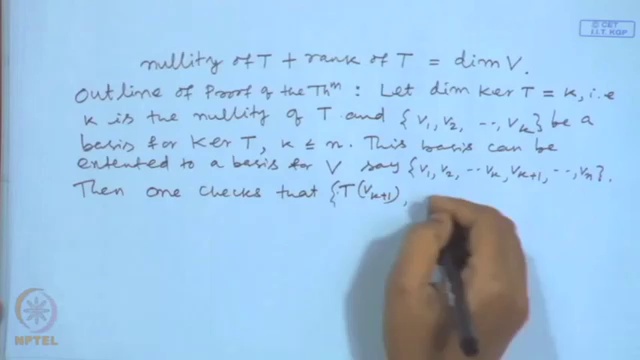 © CET
I.I.T. KGP
nullity of T + rank of T = dim V.
Outline of Proof of the Thm : Let dim Ker T = k, i.e
k is the nullity of T and {v1, v2, ..., vk} be a
basis for Ker T, k ≤ n. This basis can be
extented to a basis for V say {v1, v2, ... vk, vk+1, ..., vn}.
Then one checks that {T(vk+1),
NPTEL